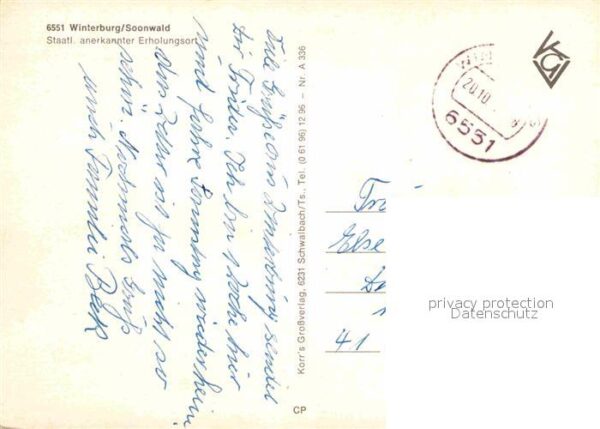 6551 Winterburg/Soonwald
Staatl. anerkannter Erholungsort
Viele Grüße aus Winterburg sendet
dir Frieder. Ich bin 1 Woche hier
und fahre Sonntag wieder heim.
das Wetter ist ja nicht so
schön. Nochmals Gruß
auch Familie
Korr's Großverlag, 6231 Schwalbach/Ts., Tel. (0 61 96) 12 96 – Nr. A 336
CP
KGV
20.10
6551
Else
41
privacy protection
Datenschutz